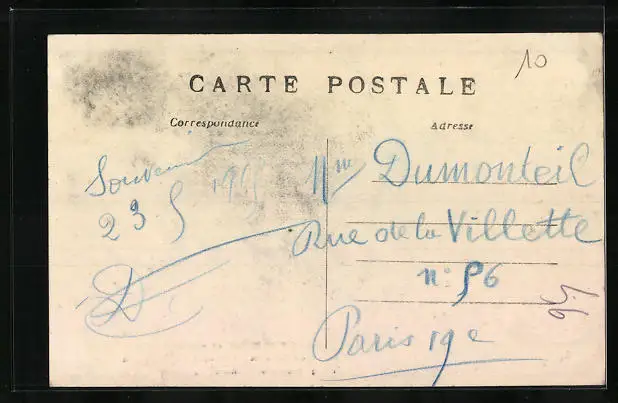 10
CARTE POSTALE
Correspondance
Adresse
Souvenir
23 5
Mme Dumonteil
Rue de la Villette
n° 56
Paris 19e